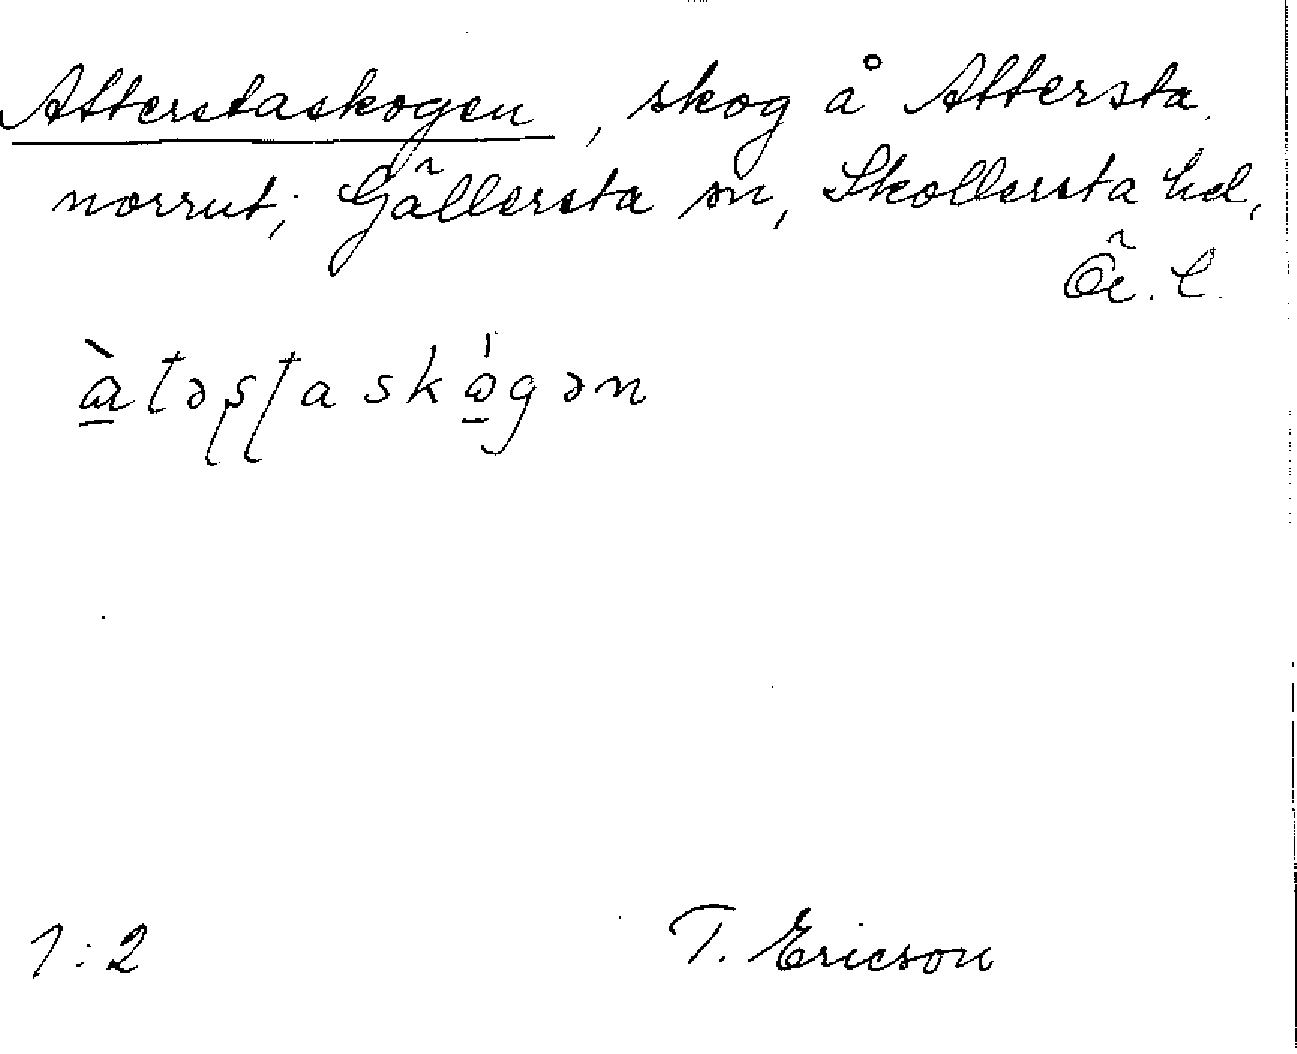 Atterstaskogen, skog å Attersta
norrut; Gällersta sn, Skollersta hd,
Ör. l.
1:2 T. Ericson